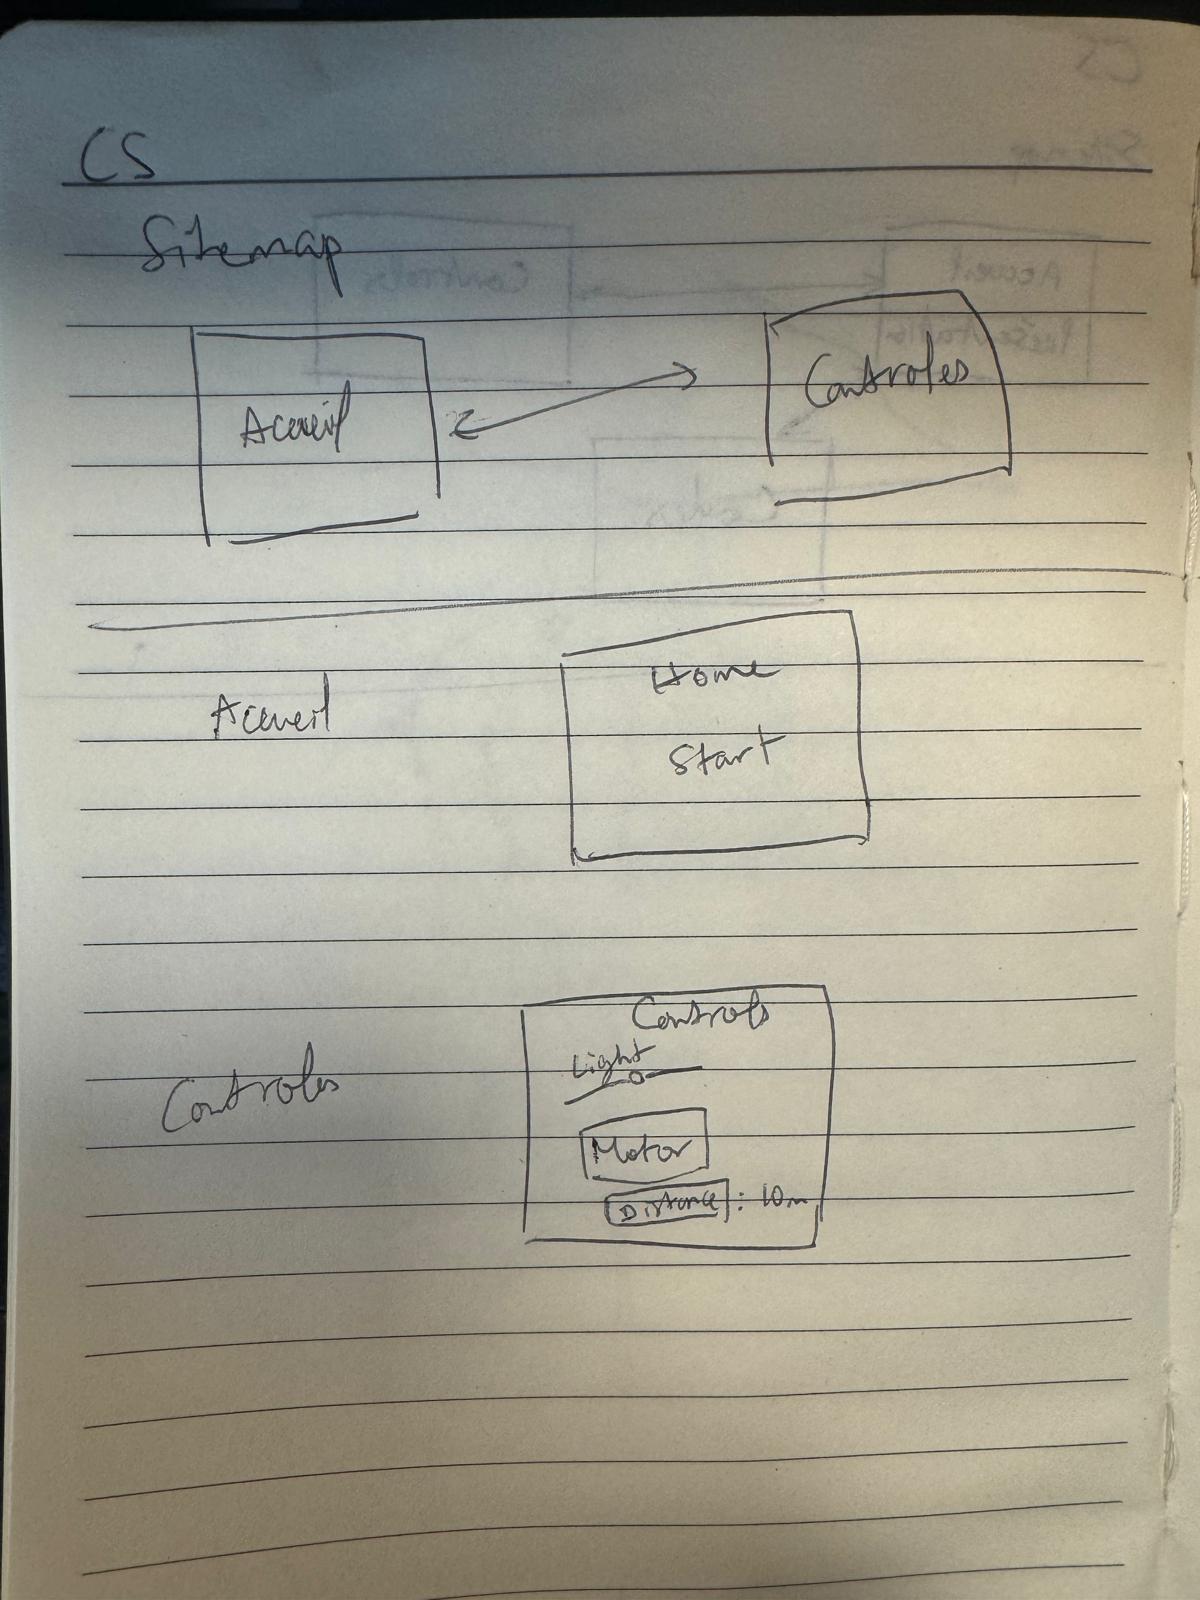 CS
Sitemap
Accueil
Controles
Accueil
Home
Start
Controles
Controls
Light
Motor
Distance : 10m